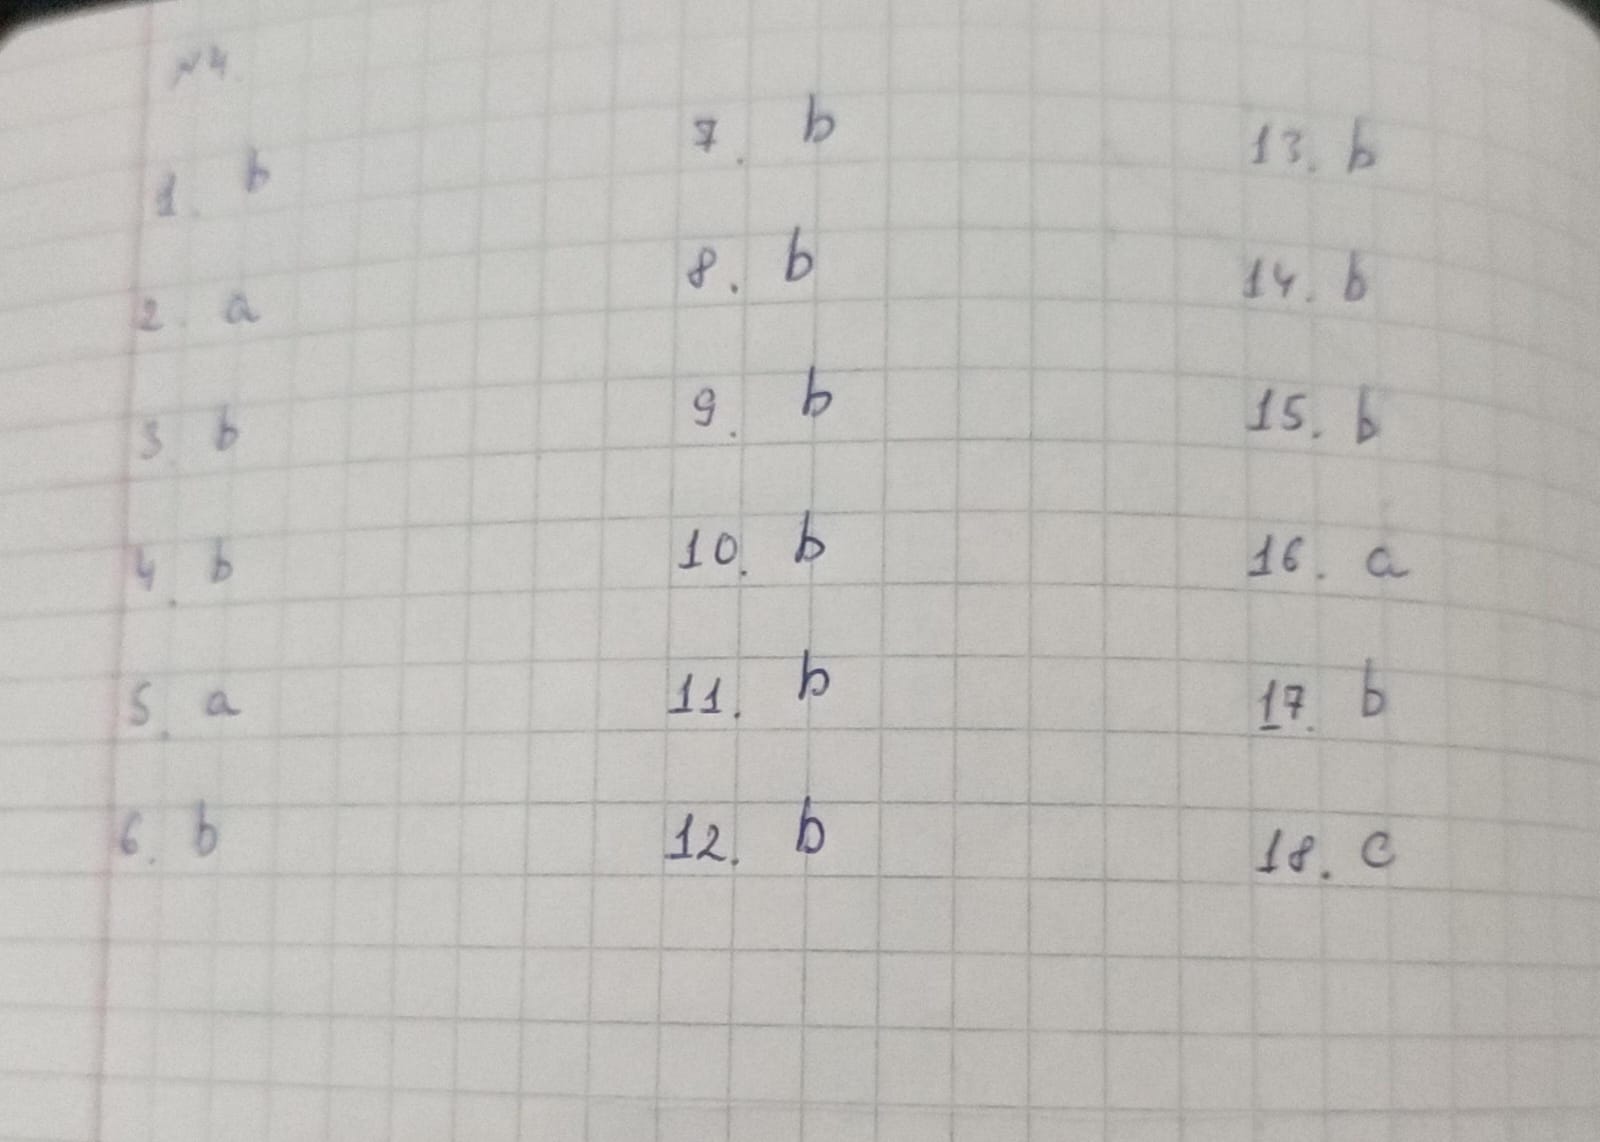 №4.
1. b
2. a
3. b
4. b
5. a
6. b
7. b
8. b
9. b
10. b
11. b
12. b
13. b
14. b
15. b
16. a
17. b
18. c